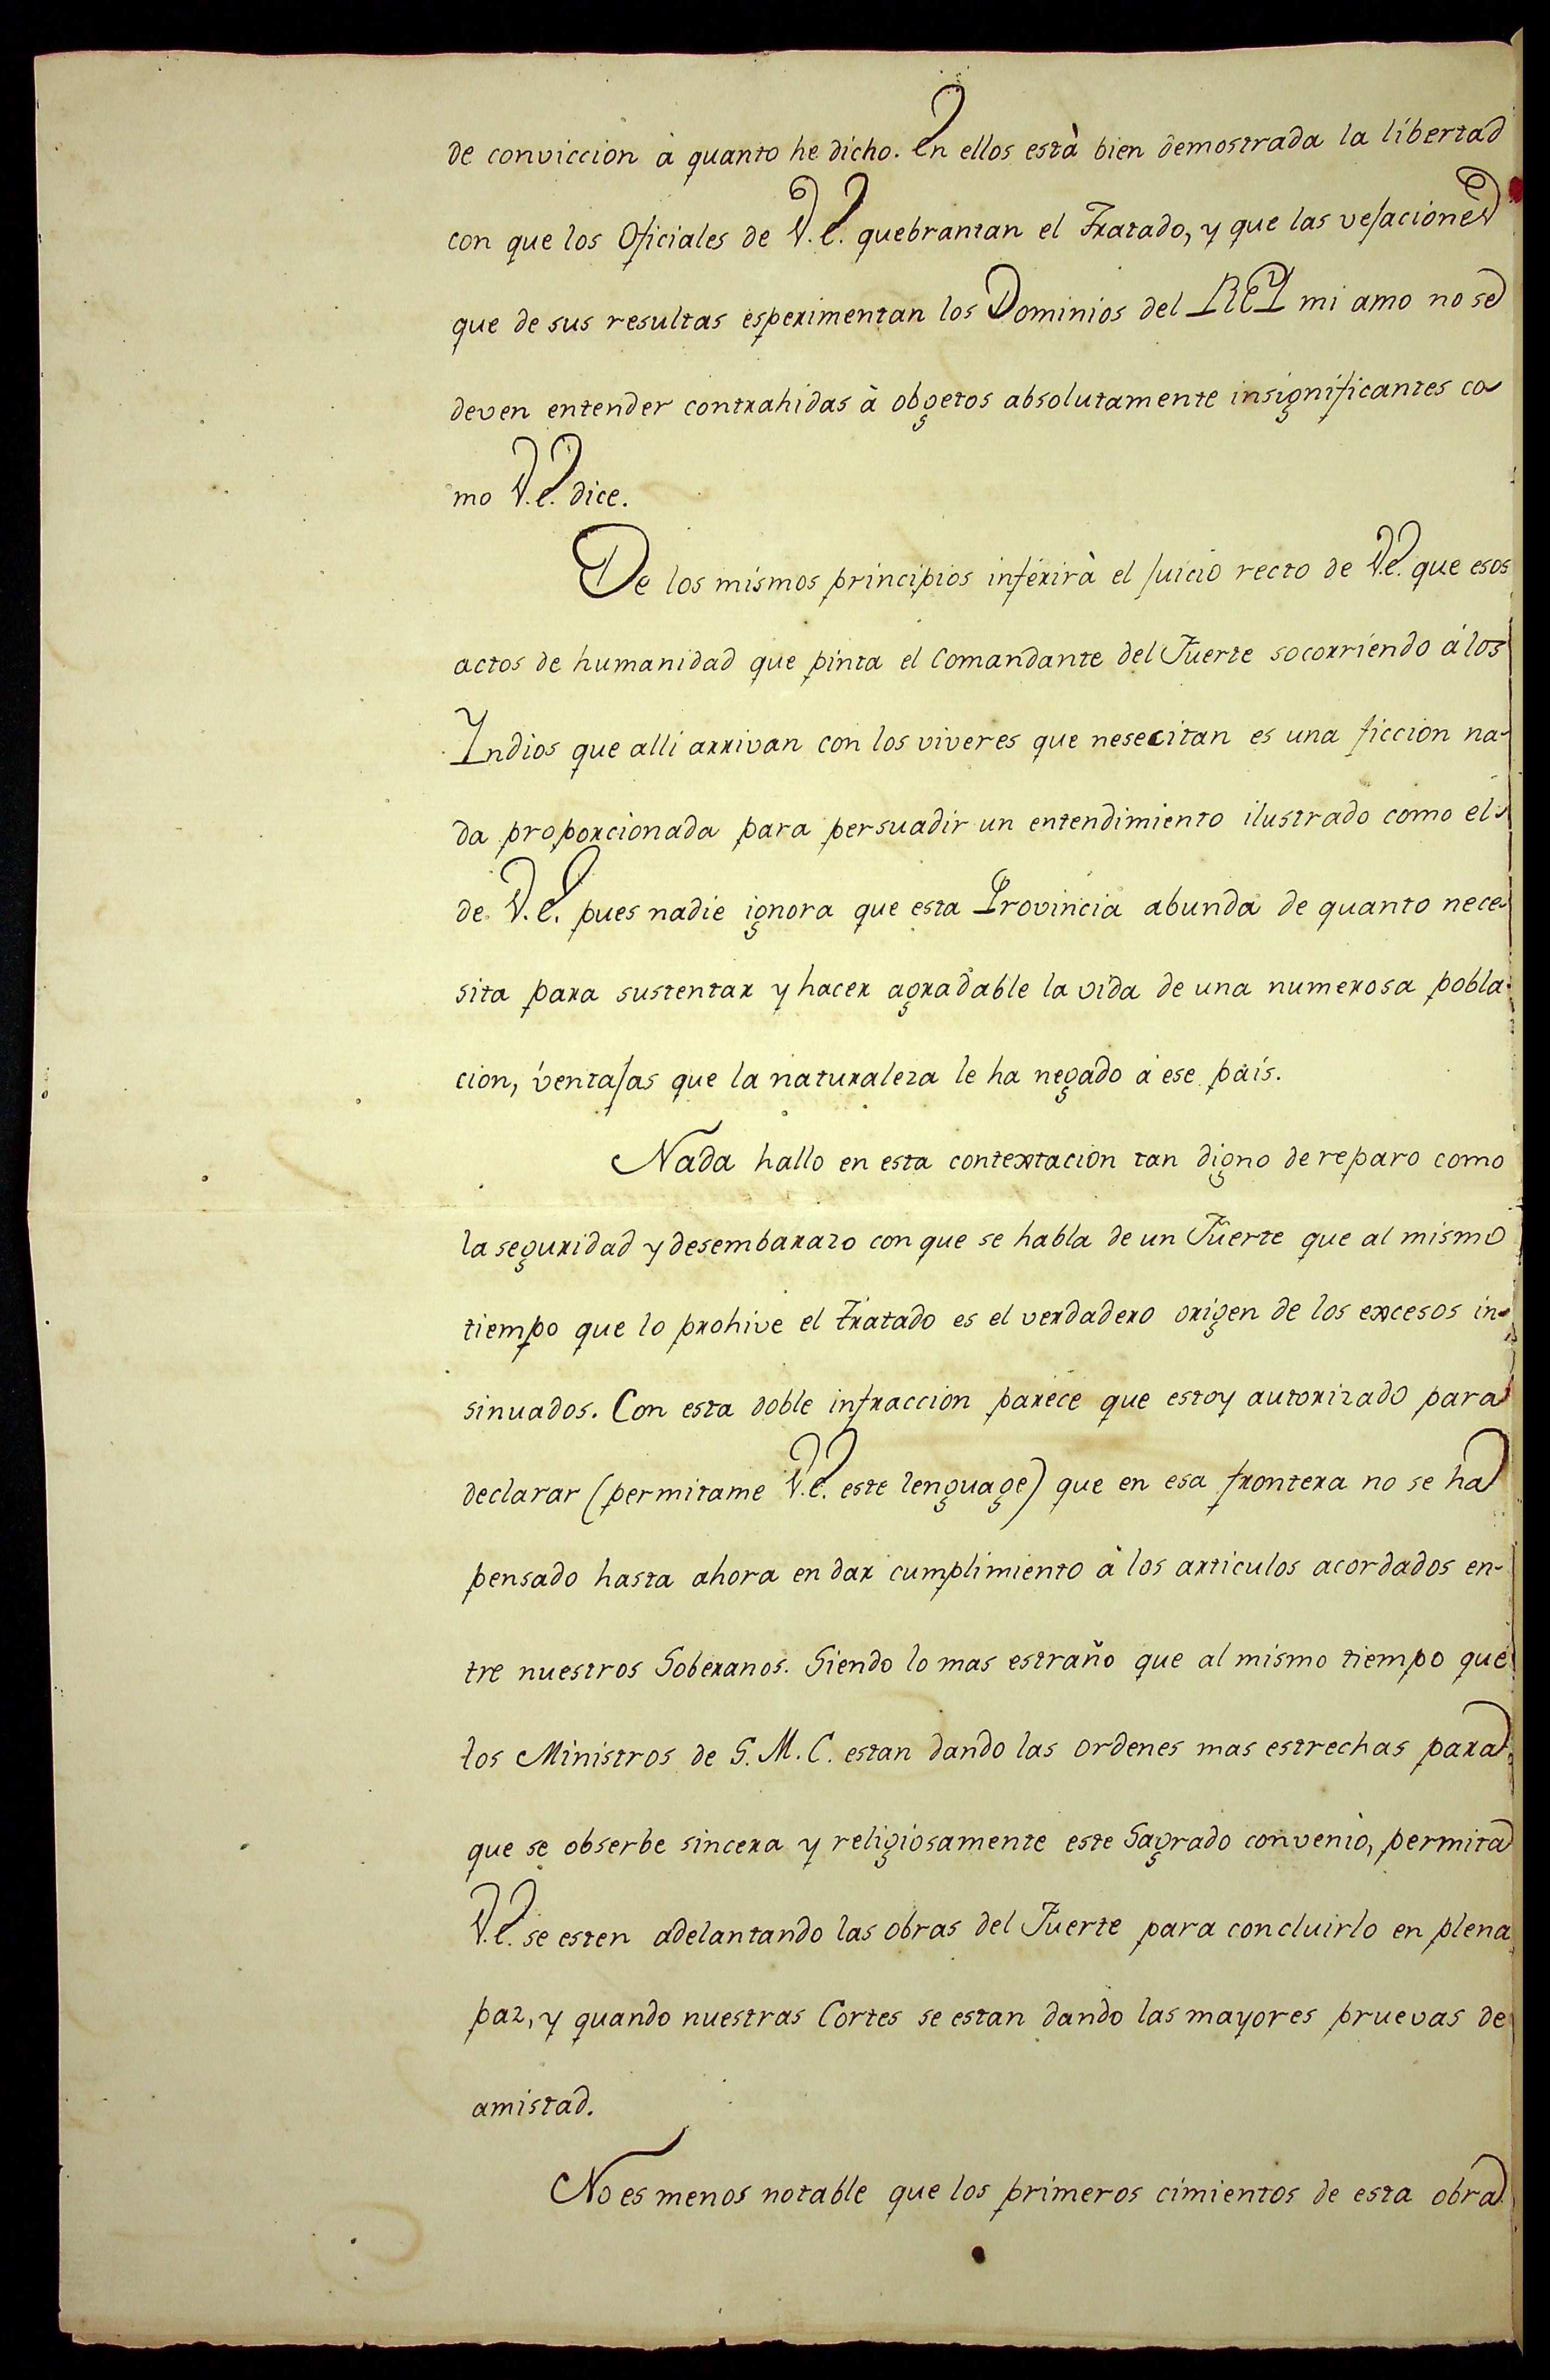 de conviccion à quanto he dicho. En ellos està bien demostrada la libertad
con que los Oficiales de V.E. quebrantan el Tratado, y que las vejaciones
que de sus resultas esperimentan los Dominios del REY mi amo no se
deven entender contrahidas à obgetos absolutamente insignificantes co-
mo V.E. dice.
De los mismos principios inferirà el juicio recto de V.E. que esos
actos de humanidad que pinta el Comandante del Fuerte socorriendo à los
Yndios que alli arrivan con los viveres que nesecitan es una ficcion na-
da proporcionada para persuadir un entendimiento ilustrado como el
de V.E. pues nadie ignora que esta Provincia abunda de quanto nece-
sita para sustentar y hacer agradable la vida de una numerosa pobla-
cion, ventajas que la naturaleza le ha negado à ese païs.
Nada hallo en esta contextacion tan digno de reparo como
la seguridad y desembarazo con que se habla de un Fuerte que al mismo
tiempo que lo prohive el tratado es el verdadero origen de los excesos in-
sinuados. Con esta doble infraccion parece que estoy autorizado para
declarar (permitame V.E. este lenguage) que en esa frontera no se ha
pensado hasta ahora en dar cumplimiento à los articulos acordados en-
tre nuestros Soberanos. Siendo lo mas estraño que al mismo tiempo que
los Ministros de S.M.C. estan dando las ordenes mas estrechas para
que se obserbe sincera y religiosamente este Sagrado convenio, permita
V.E. se esten adelantando las obras del Fuerte para concluirlo en plena
paz, y quando nuestras Cortes se estan dando las mayores pruevas de
amistad.
No es menos notable que los primeros cimientos de esta obra